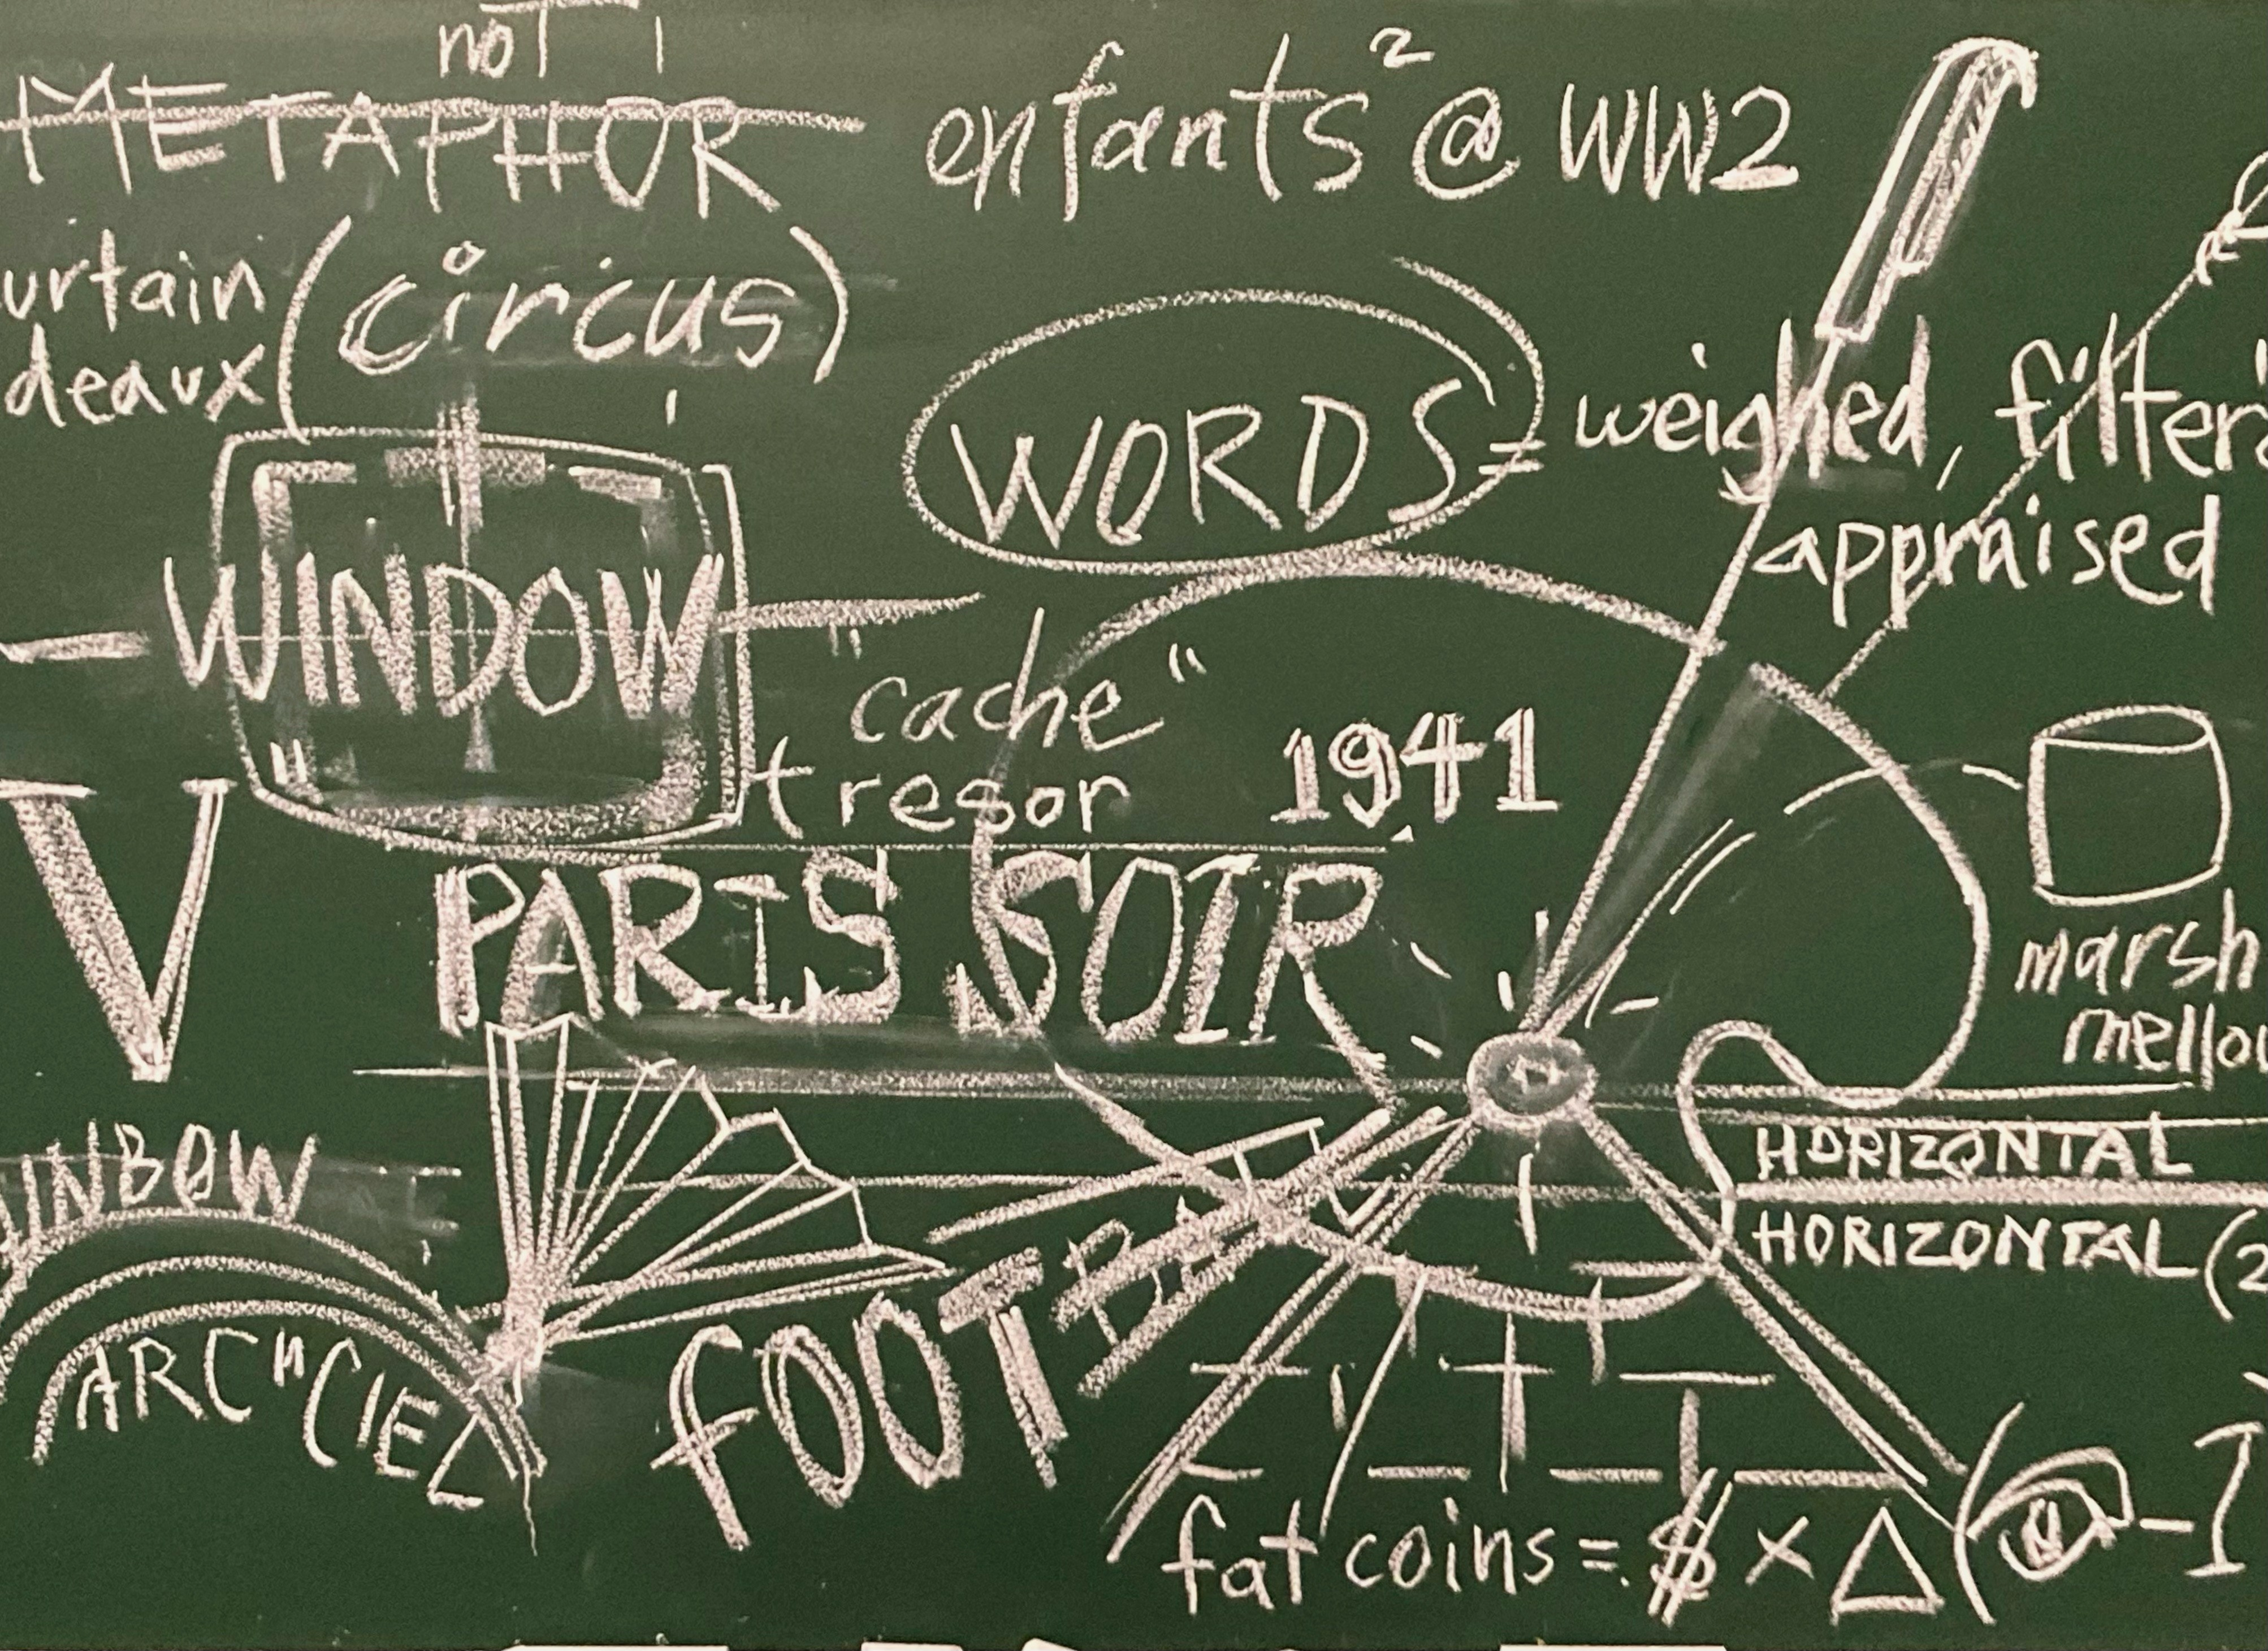 not
METAPHOR
enfants² @ WW2
urtain
deaux
(circus)
WORDS = weighed, filter
appraised
WINDOW
"cache"
tresor
1941
V
PARIS SOIR
marsh
mello
INBOW
ARC "CIEL
HORIZONTAL
HORIZONTAL (2
FOOTBA
fat coins = $ × Δ ( - I